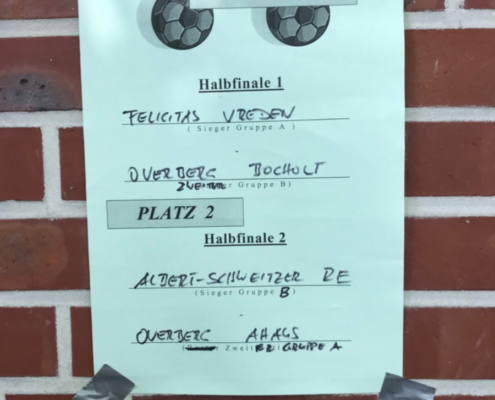 Halbfinale 1
FELICITAS VREDEN
( Sieger Gruppe A )
OVERBERG BOCHOLT
ZWEITER Gruppe B)
PLATZ 2
Halbfinale 2
ALBERT-SCHWEITZER RE
(Sieger Gruppe B)
OVERBERG AHAUS
Zweiter GRUPPE A